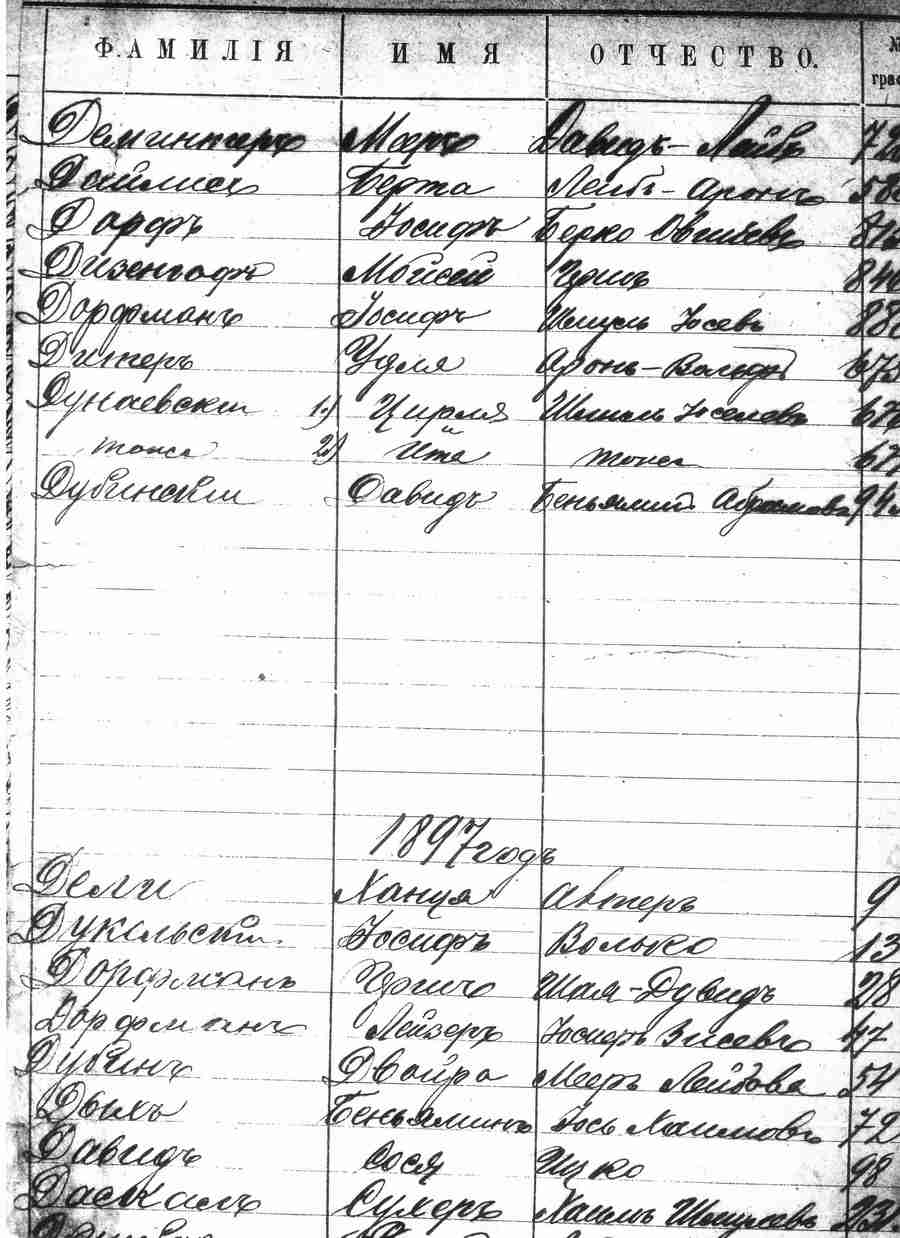 ФАМИЛІЯ ИМЯ ОТЧЕСТВО. №
Мееръ Давидъ-Лейбъ 72
Дайлисъ Берта Лейбъ-Аронъ 58
Дорфъ Іосифъ Берко Овшіевъ 81
Дизенгофъ Мойсей 84
Дорфманъ Іосифъ Шмуль Іосевъ 88
Дикеръ Удля Аронъ-Вольфъ 673
Дунаевскій 1) Цирля Шмиль Іоселевъ 67
тоже 2) и Ита тоже 67
Дубинскій Давидъ Беньяминъ Абрамовъ 94
1897 годъ
Ханця 9
Дукельскій Іосифъ Волько 13
Дорфманъ Гершъ Шая-Дувидъ 28
Дорфманъ Лейзеръ Іосифъ Зисевъ 47
Дубинъ Двойра Мееръ Лейбова 54
Дыхъ Беньяминъ Іось Хаимовъ 72
Давидъ Сося Ицко 98
Даскалъ Сухеръ Хаимъ Шмулевъ 23